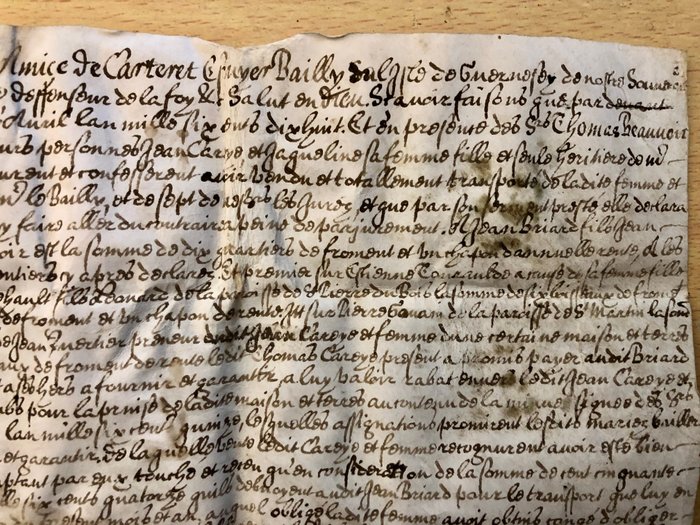 Amice de Carteret Esuyer Bailly de l'Isle de Guernesey de nostre Souverain
deffenseur de la foy &c Salut en Dieu. Scavoir faisons que par devant
d'Avril lan mille six cents dix huit. Et en presence des Srs Thomas Beauvoir
leurs personnes Jean Careye et Jaqueline sa femme fille et seule heritiere de mr
et confesserent avoir vendu et totallement transporté de ladite femme et
mr le Bailly, et de sept de messrs les Jurez, et que par son serment presté elle declara
y faire aller du contraire a peine de parjurement. A Jean Briard fils Jean
est la somme de dix quartiers de froment et un chapon dannuelle rente, A les
cy apres declarez. Et premier sur Etienne a cause de sa femme fille
fils Leonard, de la paroisse de St Pierre du Bois la somme de six boisseaux de froment
de froment et un chapon de rente, Jt sur Pierre de la paroisse de St Martin la somme
Jean Quertier preneur dudit Jean Careye et femme dune certaine maison et terres
de froment de rente ledit Thomas Careye present a promis payer audit Briard
a ses hers a fournir et garantir, a luy valoir rabat envers ledit Jean Careye et
pour la prinse de ladite maison et terres au contenu de la signee des Srs
lan mille six cents quinze, lesquelles assignations promirent lesdits mariez bailler
et garantir. de laquelle vente ledit Careye et femme recognurent avoir esté bien
par eux touché et receu qu'en consideration de la somme de cent cinquante
mille six cents quatorze quils debvoyent audit Jean Briard pour le transport que luy en
mois et an, auquel obligé ladite femme avoit obtins